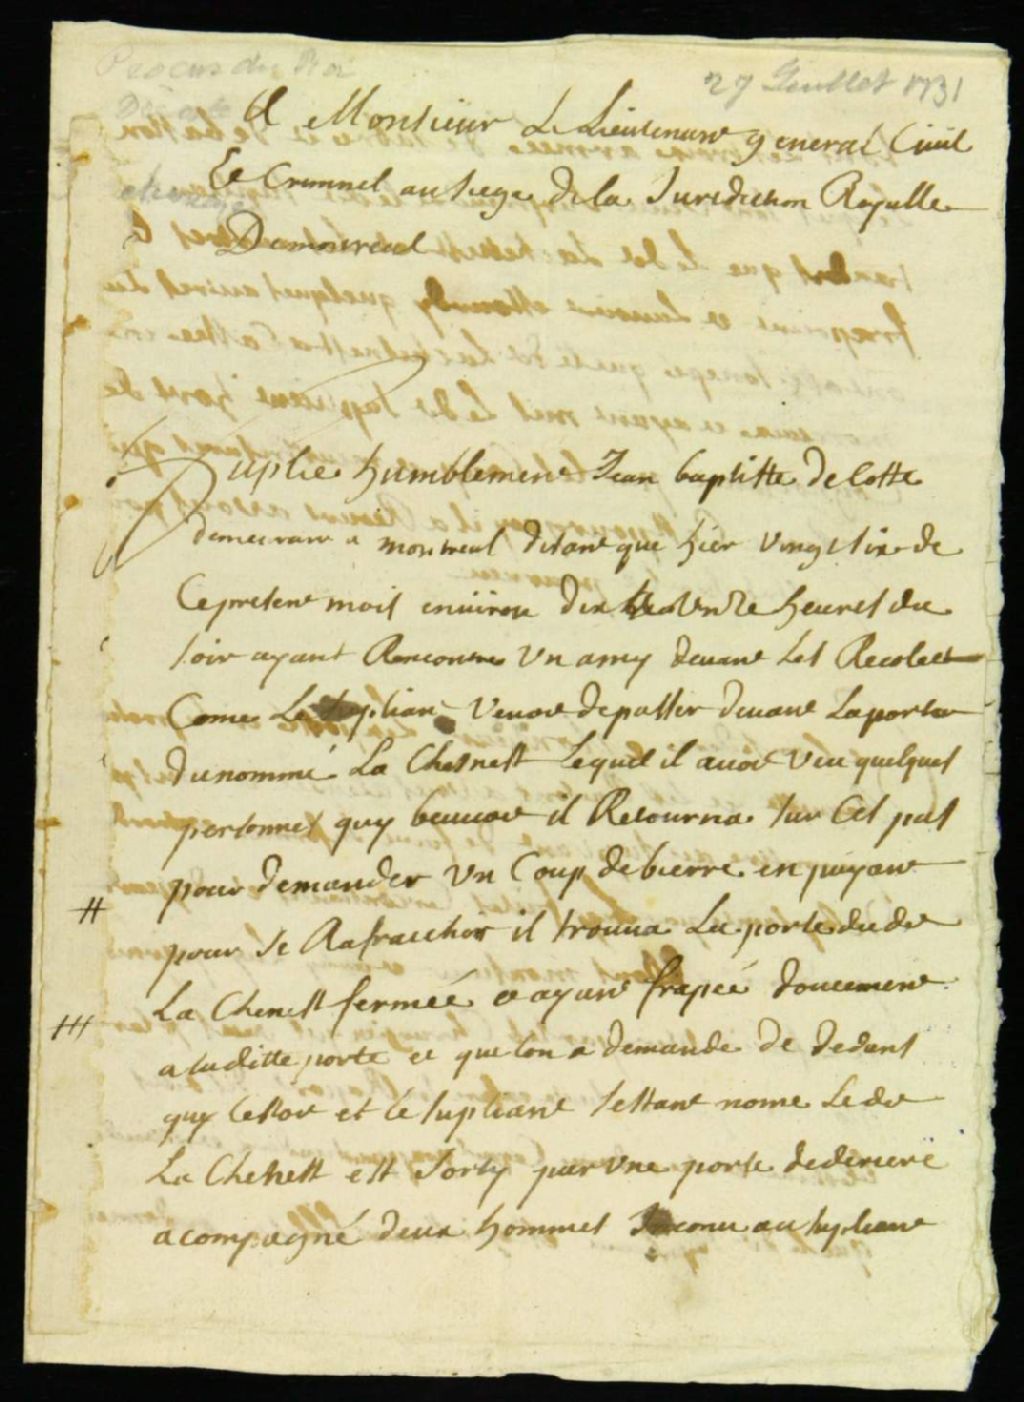 27 Juillet 1731
A Monsieur Le Lieutenant general Civil
Et Criminel au siege de la Jurisdiction Royalle
De monreal
Suplie humblement Jean baptiste de lotte
demeurant a monreal disant que hier vingt six de
Ce present mois environ dix a Unze heures du
soir ayant Rencontre Un amy devant Les Recolets
Come Le supliant Venoit de passer devant La porte
du nommé La Chesnest Lequel il avoit Veu quelques
personnes quy beuvoit il Retourna sur Ces pas
pour demander Un Coup de bierre en payant
pour se Rafraichir il trouva La porte dudt
La Chenest fermée et ayant frapée doucement
a laditte porte et que lon a demande de dedans
quy Cestoit et Le supliant sestant nome Ledt
La Chenest est sorty par Une porte de deriere
acompagné deux hommes Inconu au supliant